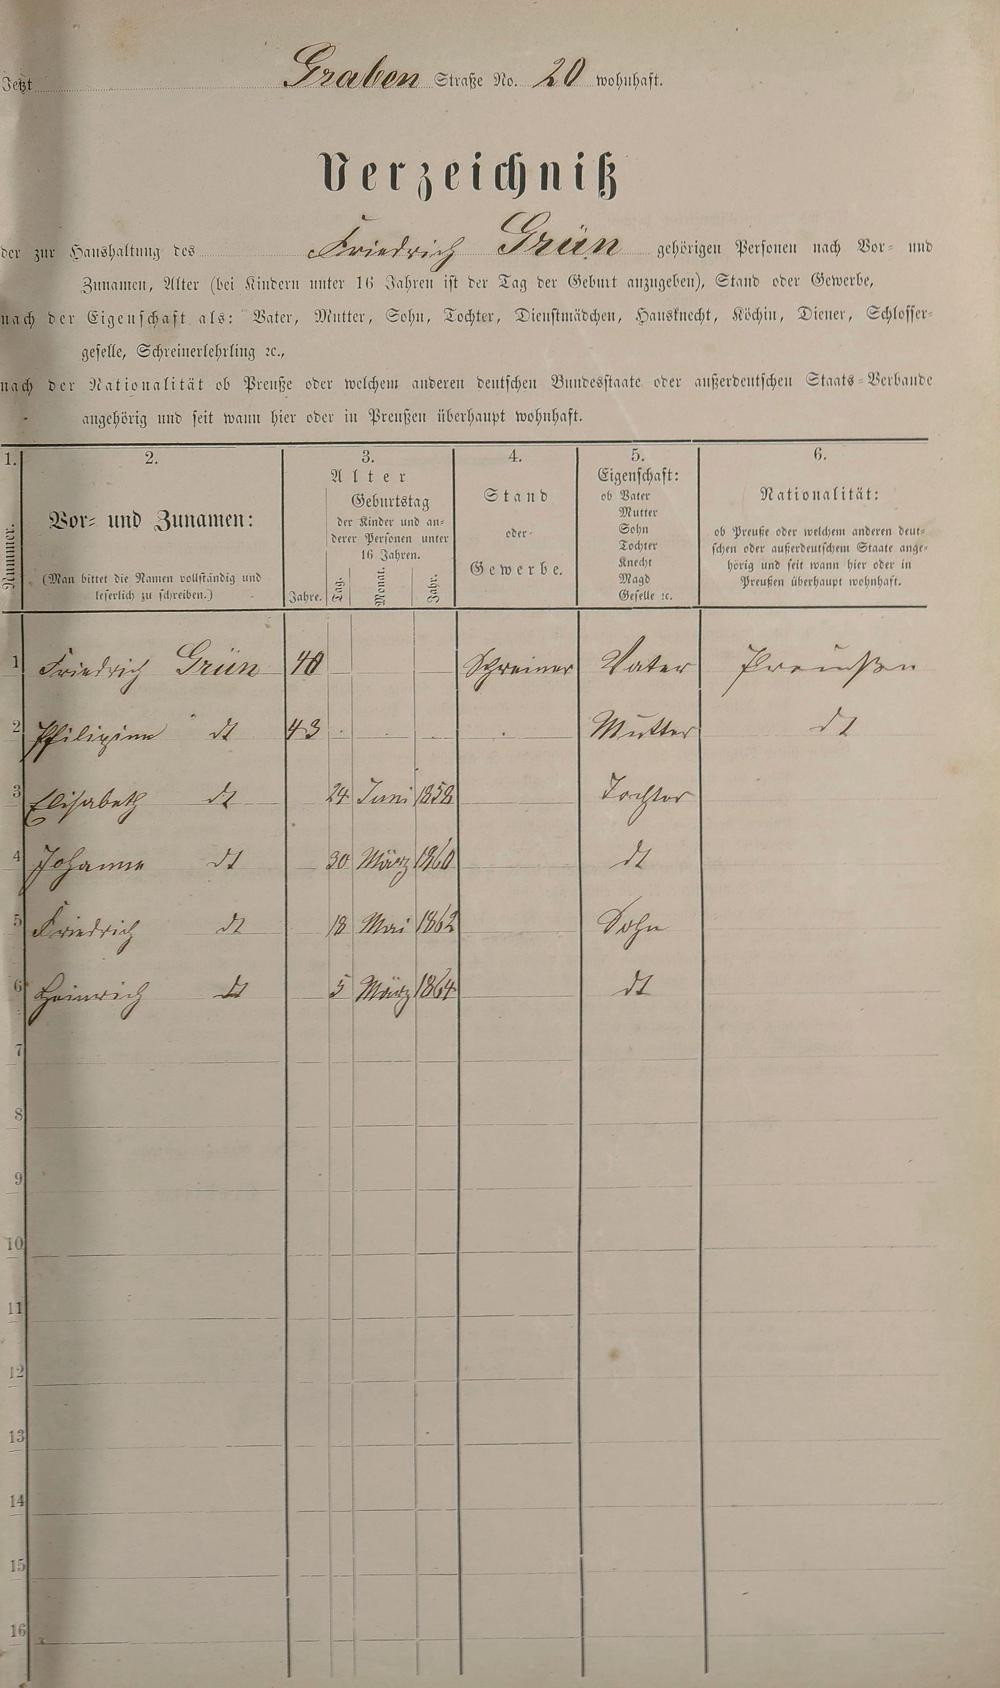 Jetzt Graben Straße No. 20 wohnhaft.
Verzeichniß
der zur Haushaltung des Friedrich Grün gehörigen Personen nach Vor- und
Zunamen, Alter (bei Kindern unter 16 Jahren ist der Tag der Geburt anzugeben), Stand oder Gewerbe,
nach der Eigenschaft als: Vater, Mutter, Sohn, Tochter, Dienstmädchen, Hausknecht, Köchin, Diener, Schlosser-
geselle, Schreinerlehrling ꝛc.,
nach der Nationalität ob Preuße oder welchem anderen deutschen Bundesstaate oder außerdeutschen Staats-Verbande
angehörig und seit wann hier oder in Preußen überhaupt wohnhaft.
1. 2. 3. 4. 5. 6.
Nummer.
Vor- und Zunamen:
(Man bittet die Namen vollständig und
leserlich zu schreiben.)
Alter
Jahre.
Geburtstag
der Kinder und an-
derer Personen unter
16 Jahren.
Tag. Monat. Jahr.
Stand
oder
Gewerbe.
Eigenschaft:
ob Vater
Mutter
Sohn
Tochter
Knecht
Magd
Geselle ꝛc.
Nationalität:
ob Preuße oder welchem anderen deut-
schen oder außerdeutschem Staate ange-
hörig und seit wann hier oder in
Preußen überhaupt wohnhaft.
1 Friedrich Grün 40 Schreiner Vater Preußen
2 Philipine dt 43 Mutter dt
3 Elisabeth dt 24 Juni 1858 Tochter
4 Johanne dt 30 März 1860 dt
5 Friedrich dt 18 Mai 1862 Sohn
6 Heinrich dt 5 März 1864 dt
7
8
9
10
11
12
13
14
15
16